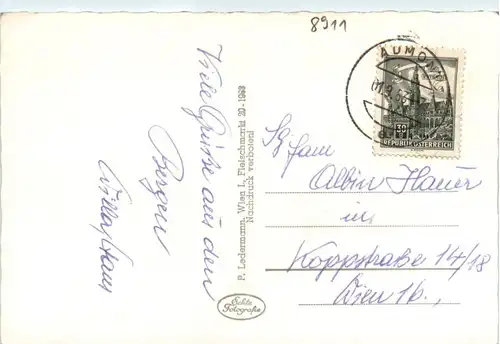 8911
Viele Grüße aus den
Bergen
Willa, Hans
P. Ledermann, Wien I, Fleischmarkt 20 - 1963
Nachdruck verboten!
Echte
Fotografie
ADMONT
30
REPUBLIK ÖSTERREICH
Fam
Albin Hauer
in
Koppstraße 14/18
Wien 16.,